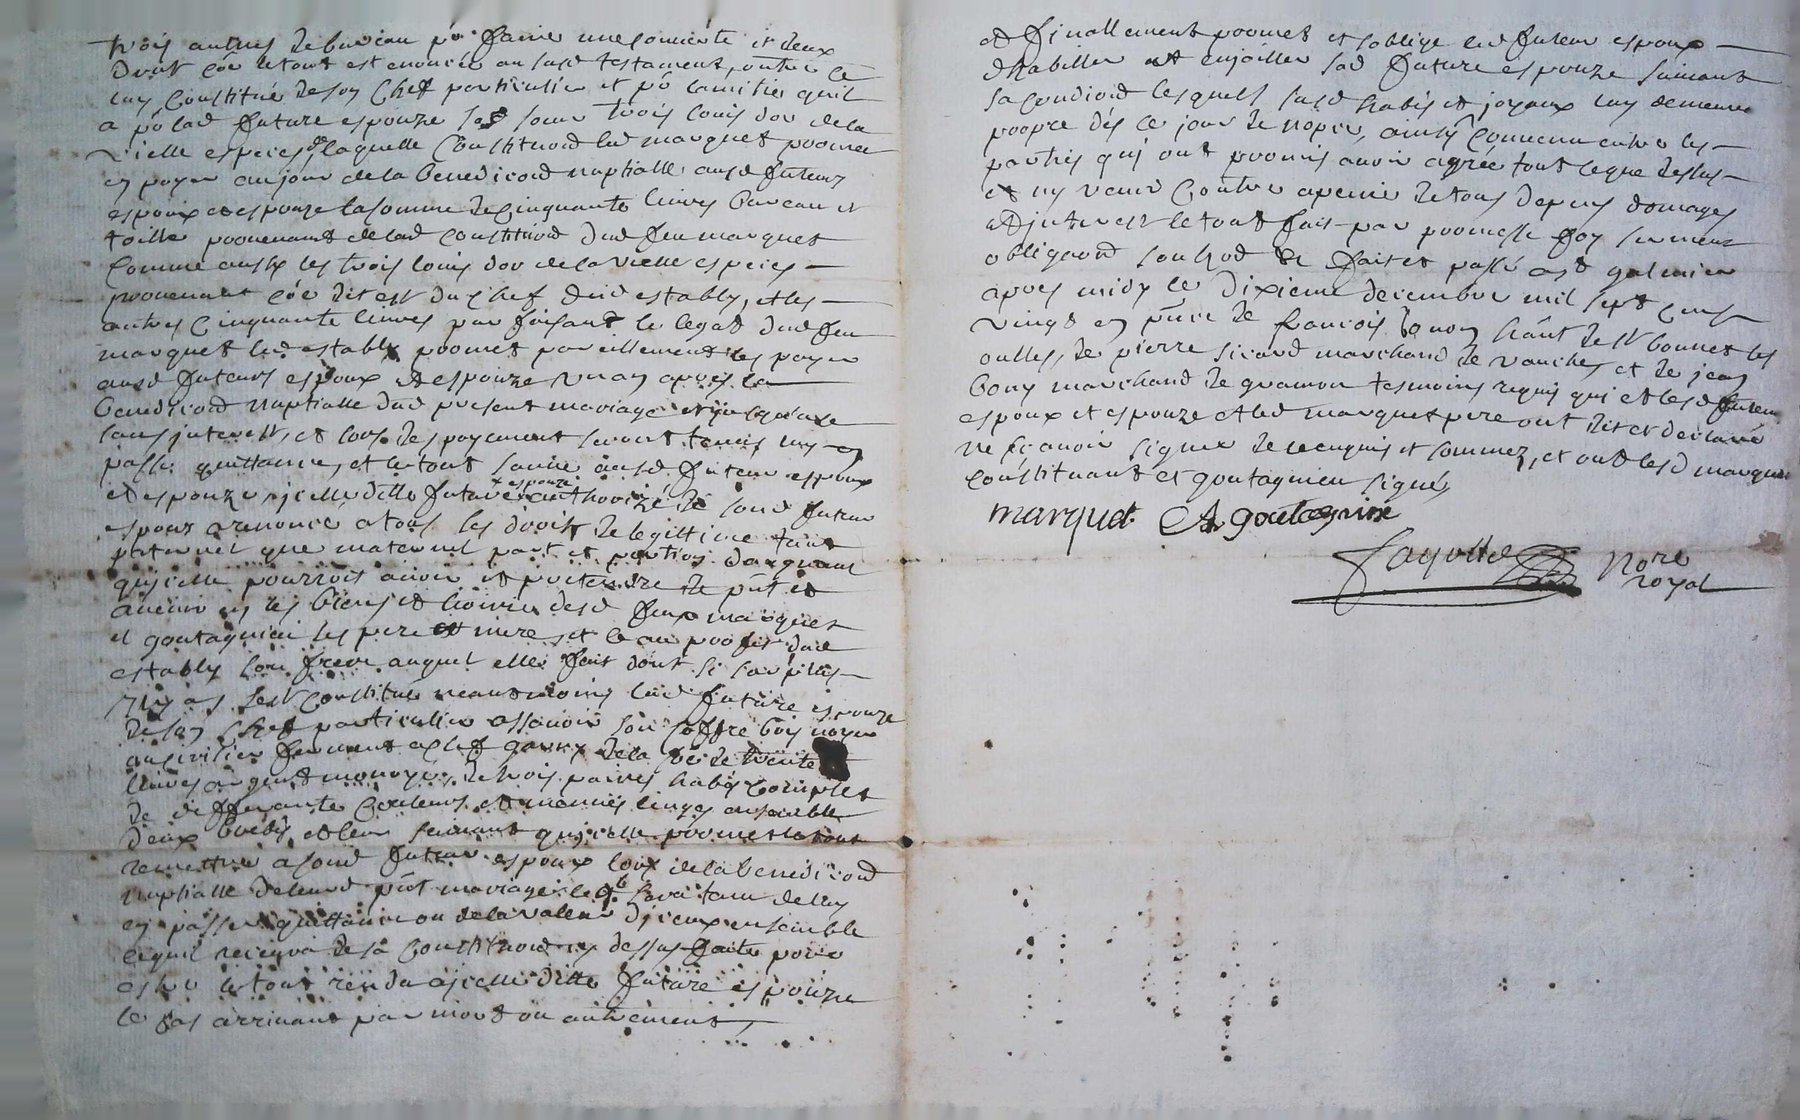 trois autres de bureau po.r faire une comierte et deux
draps cõe le tout est enoncé au susd testament, outre ce
luy constitue de son chef particulier et po.r lamitie quil
a po.r lad future espouze sa sœur trois louis dor de la
vielle espece, laquelle constitu͠on led marquet promet
en payer au jour de la benedicoñ nuptialle ausd futurs
espoux et espouze la somme de cinquante livres bureau et
toille provenants de lad constitu͠on dud feu marquet
comme aussy les trois louis dor de la vielle espece
provenant cõe dit est du chef dud estably, et les
autres cinquante livres par faisant le legat dud feu
marquet led estably promet pareillement les payer
ausd futurs espoux et espouze un an apres la
benedicoñ nuptialle dud present mariage et jusques a ce
sans interest, et lors des payements seront tenus luy en
passer quittance, et le tout sauve ausd futeur espoux
et espouze, icelle ditte future espouze authorizée de sond futeur
espoux a renoncé a tous les droits de legittime tant
paternel que maternel part et portion daugment
quicelle pourroit avoir et pretendre de pñt et
advenir en les biens et hoiries desd feux marquet
et goutagnieu ses pere et mere, et ce au profit dud
estably son frere auquel elle fait dont si sur plus
ny a, sest constitué neantmoins lad future espouze
de son chef particulier assavoir son coffre bois noyer
au civilier fermant a clef garny de la vr de trente
livres argent monoye, de trois paires habis complet
de differante couleurs et menues linges ensemble
deux brebis et leur suivant quicelle promet le tout
remettre a sond futeur espoux lors de la benedicoñ
nuptialle de leurd pñt mariage leql sera tenu de luy
en passer quittance ou de la valeur diceux ensemble
ce quil recepvra de sa constitu͠on cy dessus faite pour
estre le tout rendu a icelle ditte future espouze
le cas arrivant par mort ou autrement,
et finallement promet et soblige led futeur espoux
dhabiller et enjoailler sad future espouze suivant
sa condicoñ lesquels susd habis et joyaux luy demeurer
propre dés ce jour de nopces, ainsy convenu entre les
parties qui ont promis avoir agrée tout ce que dessus
et ny venir contre a peine de tous depens domages
et interest le tout fait par promesse foy serment
obligaoñ soubzmñ &c fait et passé a st galmier
apres midy le dixieme decembre mil sept cens
vingt en pñce de francois bonon hãnt de st bonnet les
oulles, de pierre sicard marchand de vauche, et de jean
bouy marchand de gramon tesmoins requis qui et lesd futeur
espoux et espouze et led marquet pere ont dit et declaré
ne sçavoir signer de ce enquis et sommez, et ont lesd marquet
constituant et goutagnieu signés
marquet A goutagnieu
fayolle No.re
royal